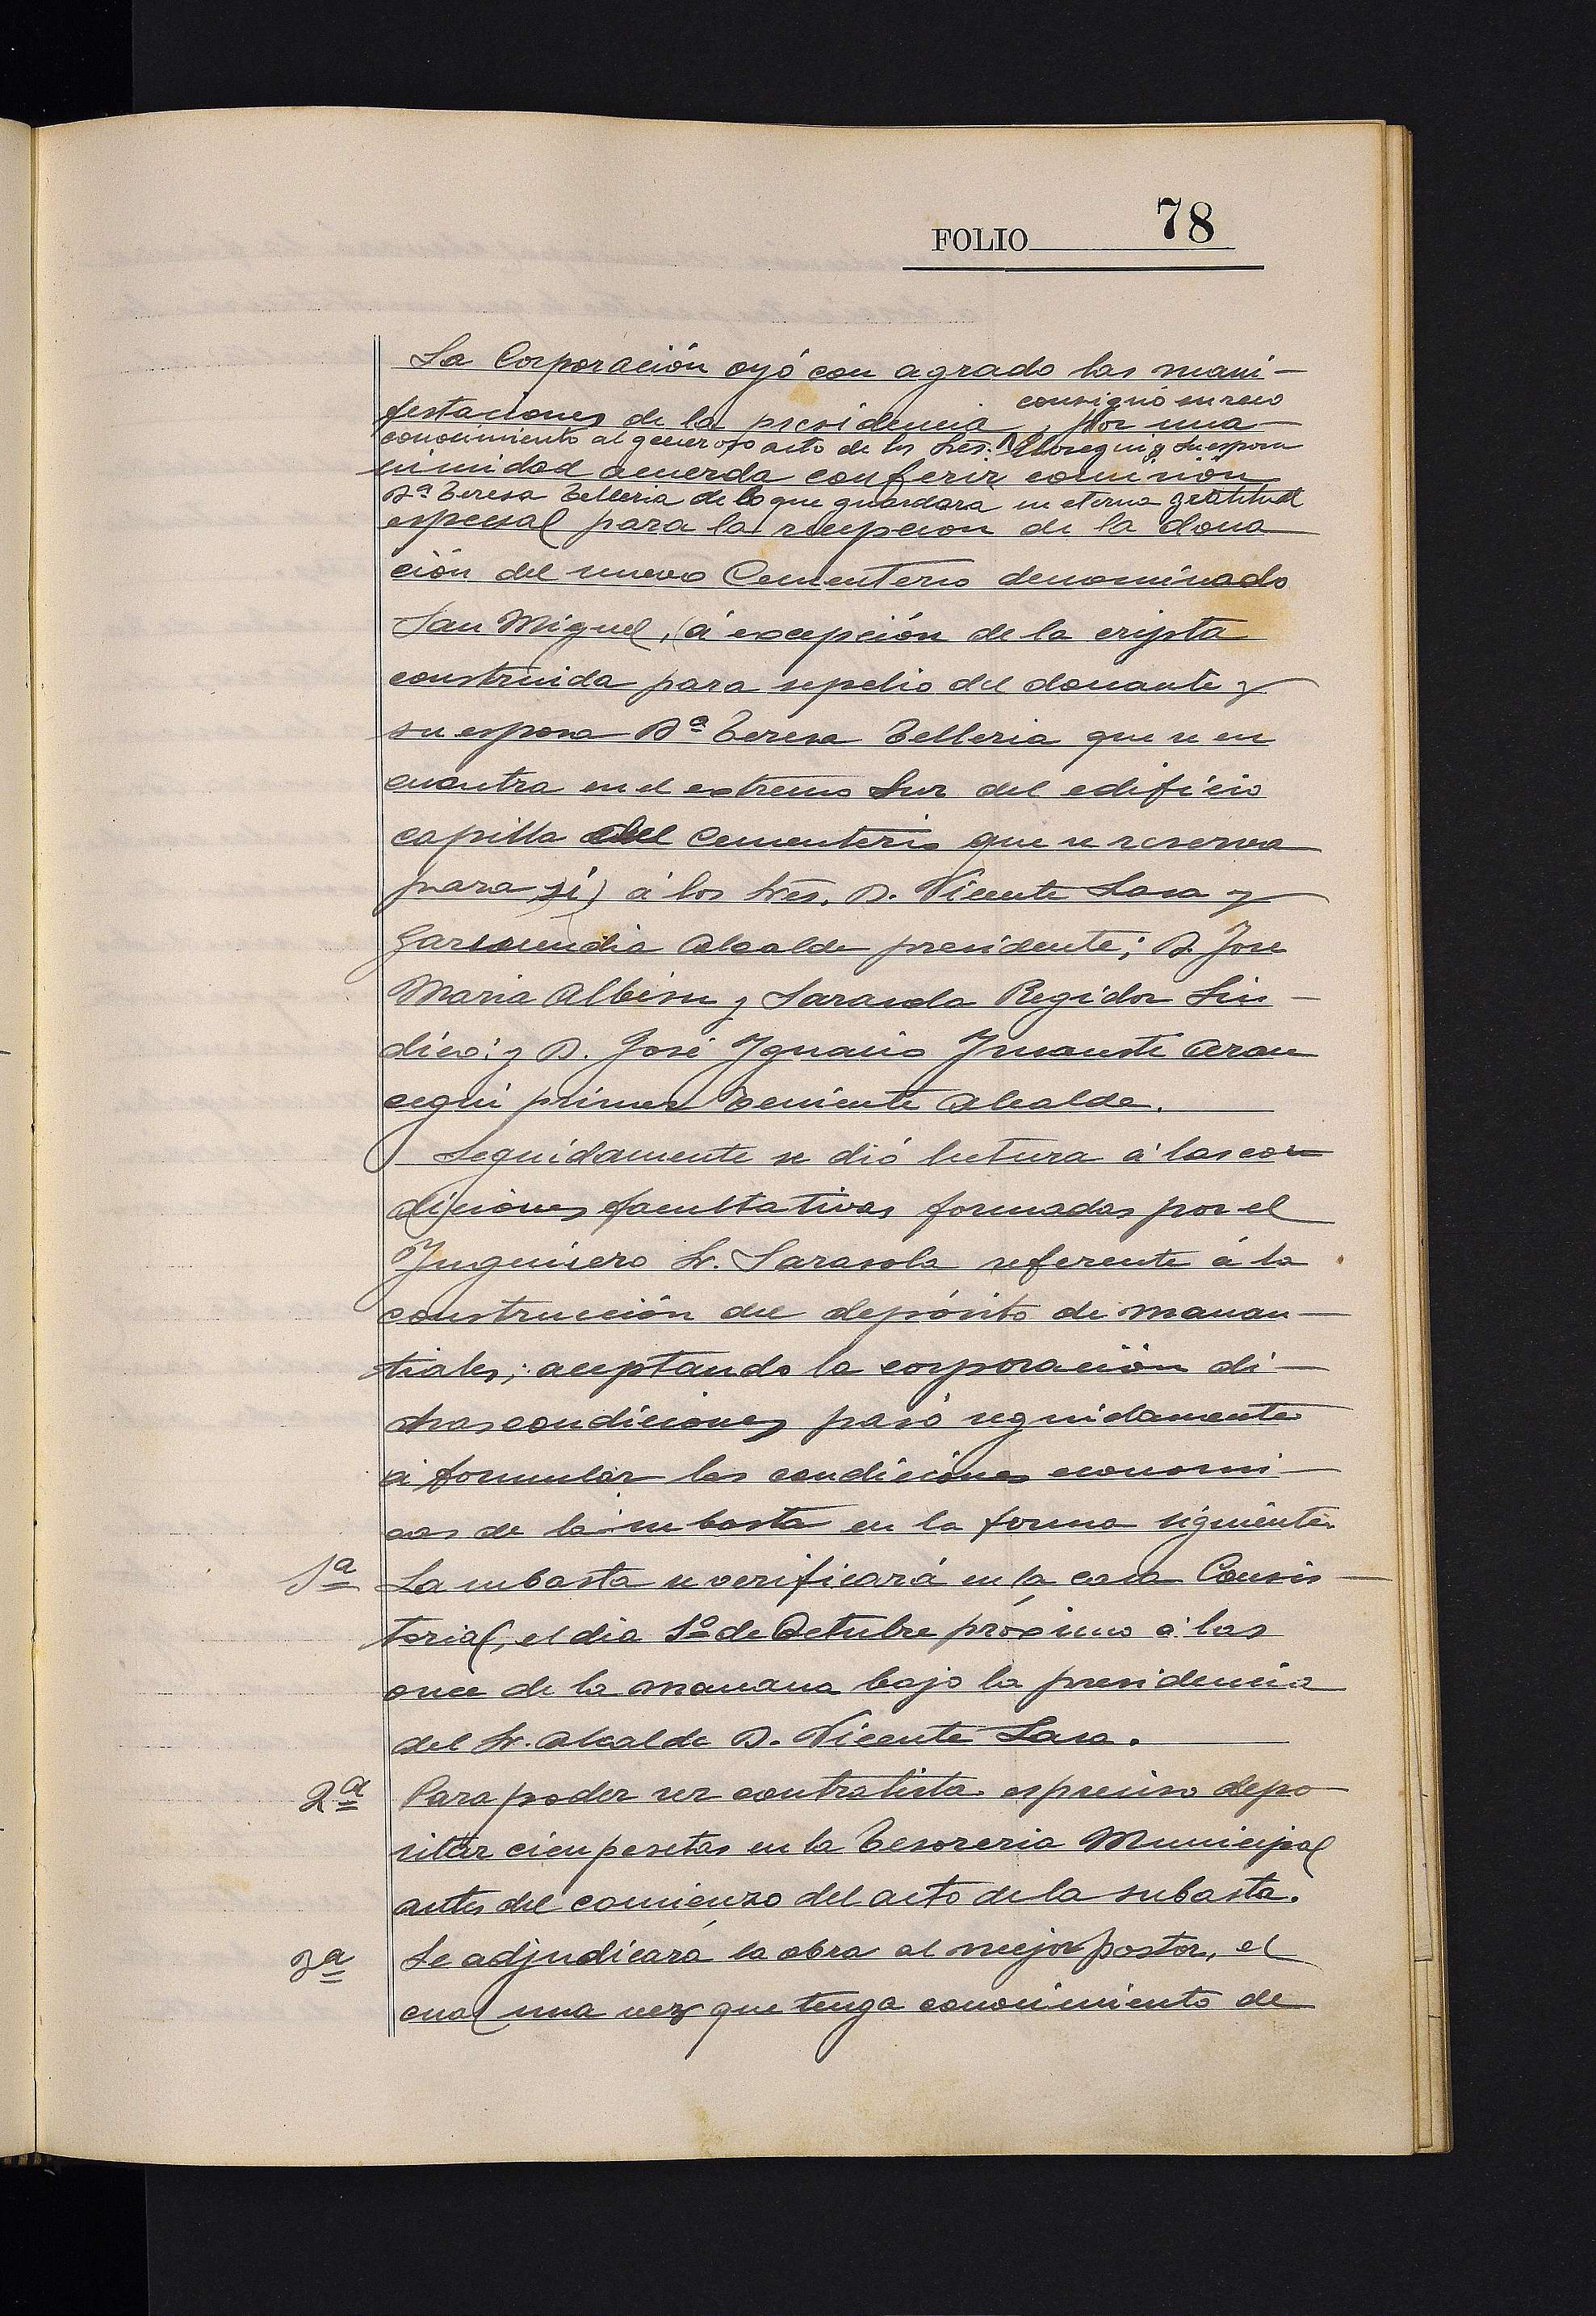 FOLIO 78
La Corporación oyó con agrado las mani-
consignó su reco
festaciones de la presidencia, por una-
conocimiento al generoso acto de los Sres. Elosegui y su esposa
nimidad acuerda conferir comisión
Dª Teresa Telleria de lo que guardará su eterna gratitud
especial para la recepción de la dona
ción del nuevo Cementerio denominado
San Miguel, (á excepción de la cripta
construida para sepelio del donante y
su esposa Dª Teresa Telleria que se en
cuentra en el extremo Sur del edificio
capilla del Cementerio que se reserva
para sí) á los Sres. D. Vicente Lasa y
Garmendia Alcalde presidente; D. Jose
Maria Albisu y Sarasola Regidor Sin-
dico; y D. José Ignacio Aran
cegui primer Teniente Alcalde.
Seguidamente se dió lectura á las con
diciones facultativas formadas por el
Yngeniero Sr. Sarasola referente á la
construcción del depósito de manan-
tiales; aceptando la corporación di-
chas condiciones pasó seguidamente
á formular las condiciones economi-
cas de la subasta en la forma siguiente.
1ª La subasta se verificará en la casa Consis-
torial, el dia 1º de Octubre próximo á las
once de la manana bajo la presidencia
del Sr. Alcalde D. Vicente Lasa.
2ª Para poder ser contratista es preciso depo-
sitar cien pesetas en la Tesoreria Municipal
antes del comienzo del acto de la subasta.
3ª Se adjudicará la obra al mejor postor, el
cual una vez que tenga conocimiento de